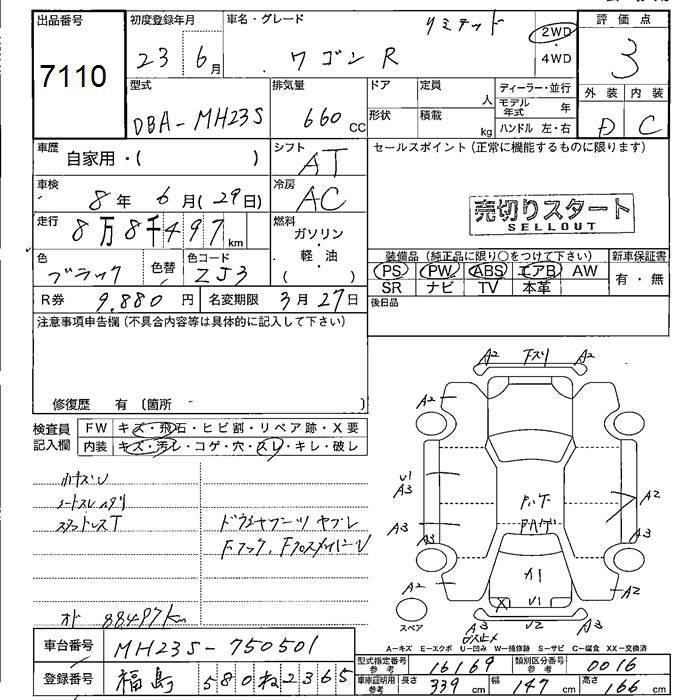 出品番号 7110
初度登録年月 23 6月
車名・グレード ワゴンR リミテッド
2WD・4WD
評価点 3
外装 D 内装 C
型式 DBA-MH23S
排気量 660 CC
ドア 定員 人
形状 積載 kg
ディーラー・並行
モデル年式 年
ハンドル 左・右
車歴 自家用・( )
シフト AT
車検 8年 6月(29日)
冷房 AC
走行 8万8千497 km
燃料 ガソリン・軽・油 ( )
色 ブラック 色替 色コード ZJ3
R券 9.880 円 名変期限 3月27日
セールスポイント(正常に機能するものに限ります)
売切りスタート
SELLOUT
装備品(純正品に限り○をつけて下さい)
PS PW ABS エアB AW
SR ナビ TV 本革
新車保証書 有・無
後日品
注意事項申告欄(不具合内容等は具体的に記入して下さい)
修復歴 有〔箇所 〕
検査員記入欄
FW キズ・飛石・ヒビ割・リペア跡・X要
内装 キズ・汚レ・コゲ・穴・スレ・キレ・破レ
ドウシャフーツ ヤブレ
オド 88497km
A2 Fスリ A2
A2 A2
U1
A3 A2
A3 A3
A2 A2
A1
X U1
スペア A3 U2 A3
A-キズ E-エクボ U-凹み W-補修跡 S-サビ C-腐食 XX-交換済
車台番号 MH23S-750501
登録番号 福島 580 ね 2365
型式指定番号 参考 16169
類別区分番号 参考 0016
車庫証明用 参考 長さ 339 cm 幅 147 cm 高さ 166 cm